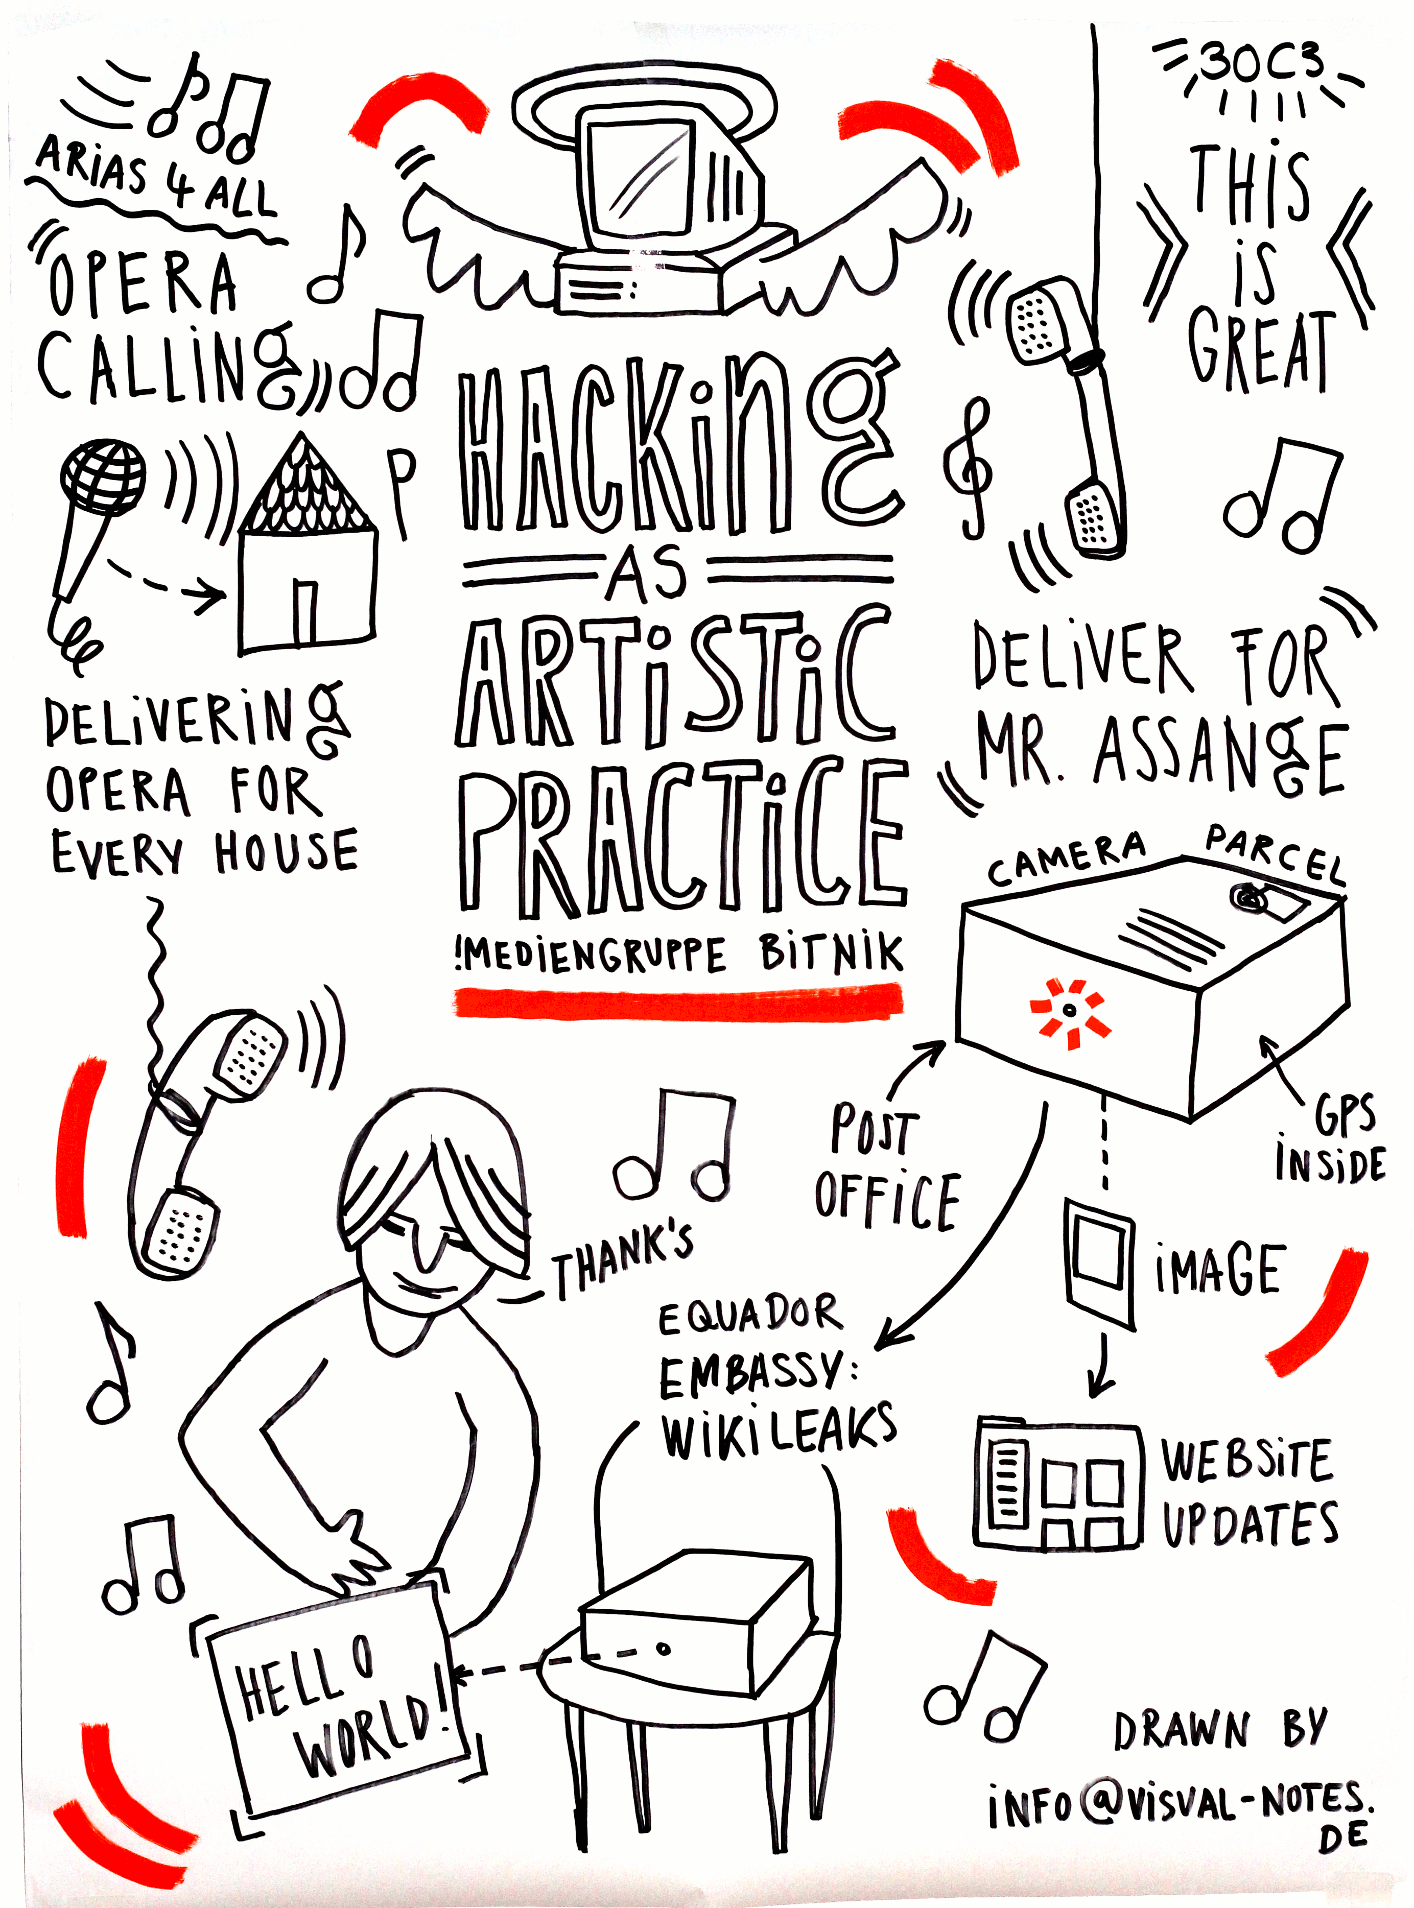 ARiAS 4 ALL
OPERA
CALLiNg
P
DELiVERiNg
OPERA FOR
EVERY HOUSE
HACKing
AS
ARTiSTiC
PRACTiCE
!MEDiENGRUPPE BiTNiK
30C3
THiS
iS
GREAT
DELiVER FOR
MR. ASSANgE
CAMERA PARCEL
POST
OFFiCE
GPS
iNSiDE
iMAGE
WEBSiTE
UPDATES
THANK'S
EQUADOR
EMBASSY:
WiKiLEAKS
HELLO
WORLD!
DRAWN BY
iNFO@ViSVAL-NOTES.
DE